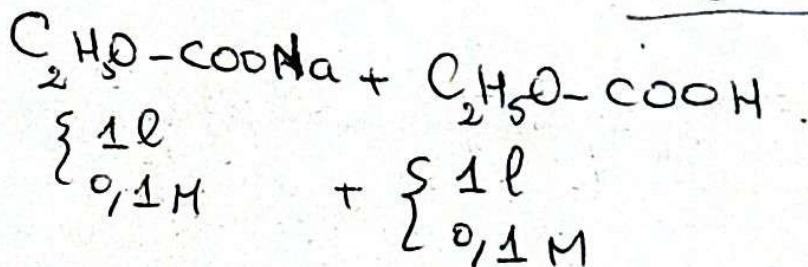 C₂H₅O-COONa + C₂H₅O-COOH.
{ 1l + { 1l
0,1M 0,1M